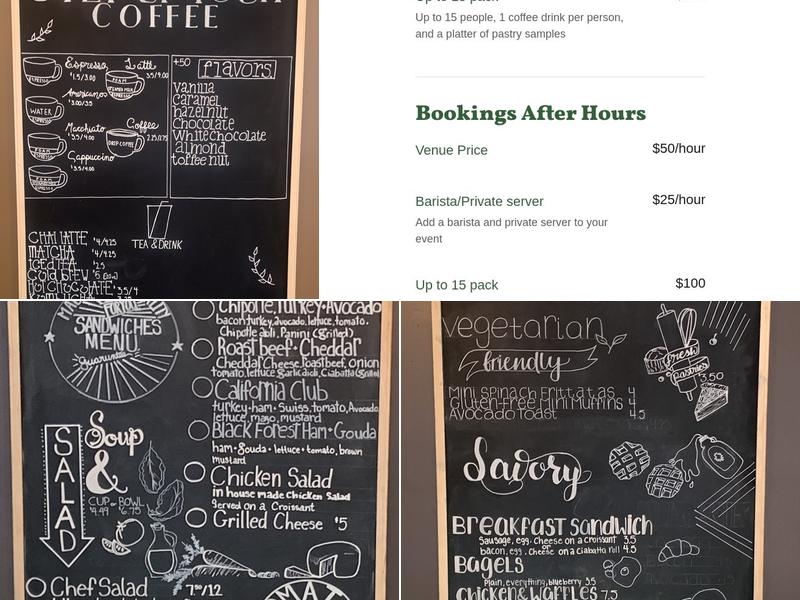 COFFEE
Espresso
$1.5/3.00
Latte
3.5/4.00
Americano
$3.00/3.5
WATER
Macchiato
$3.5/4.00
Coffee
2.25/2.75
DRIP COFFEE
Cappuccino
$3.5/4.00
+50 flavors
vanilla
caramel
hazelnut
chocolate
White chocolate
almond
toffee nut
TEA & DRINK
CHAI LATTE $4/4.25
MATCHA $4/4.25
ICED TEA $2.5
COLD BREW $5
HOT CHOCOLATE $3.5/4
Up to 15 people, 1 coffee drink per person,
and a platter of pastry samples
Bookings After Hours
Venue Price $50/hour
Barista/Private server $25/hour
Add a barista and private server to your
event
Up to 15 pack $100
SANDWICHES
MENU
Chipotle, Turkey • Avocado
bacon, turkey, avocado, lettuce, tomato,
Chipotle aoli, Panini (grilled)
Roast beef • Cheddar
Cheddar Cheese, Roast beef, onion
tomato, lettuce, garlic aioli, Ciabatta (grilled)
California Club
turkey • ham • Swiss, tomato, Avocado
lettuce, mayo, mustard
Black Forest Ham • Gouda
ham • Gouda • lettuce • tomato, brown
mustard
Chicken Salad
in house made Chicken Salad
Served on a Croissant
Grilled Cheese $5
SALAD
Soup
&
CUP or BOWL
$4.99 $6.75
Chef Salad
7.00/12
vegetarian
friendly
Mini Spinach Frittatas 4
Gluten Free Mini Muffins 4
Avocado Toast 4.5
Fresh
Pastries
3.50
Savory
Breakfast Sandwich
Sausage, egg, Cheese on a Croissant 3.5
or
bacon, egg, Cheese on a Ciabatta roll 4.5
Bagels
Plain, everything, blueberry 3.5
Chicken & Waffles 7.5